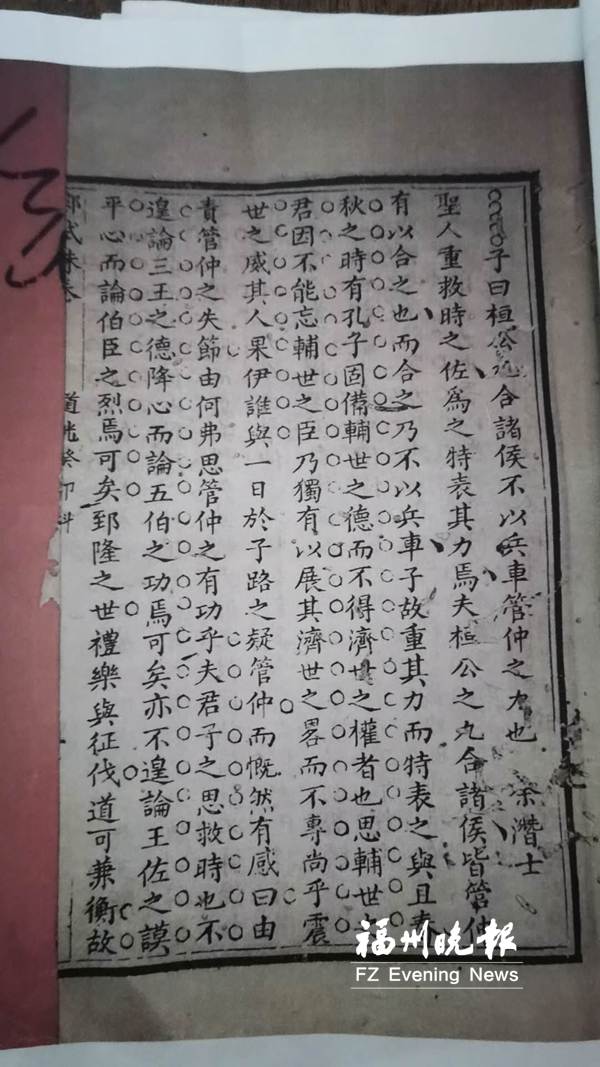 子曰桓公九合諸侯不以兵車管仲之力也 余潛士
聖人重救時之佐爲之特表其力焉夫桓公之九合諸侯皆管仲
有以合之也而合之乃不以兵車子故重其力而特表之與且春
秋之時有孔子固備輔世之德而不得濟世之權者也思輔世之
君因不能忘輔世之臣乃獨有以展其濟世之畧而不專尚乎震
世之威其人果伊誰與一日於子路之疑管仲而慨然有感曰由
責管仲之失節由何弗思管仲之有功乎夫君子之思救時也不
遑論三王之德降心而論五伯之功焉可矣亦不遑論王佐之謨
平心而論伯臣之烈焉可矣郅隆之世禮樂與征伐道可兼衡故
鄉試硃卷 道光癸卯科
福州晚報
FZ Evening News